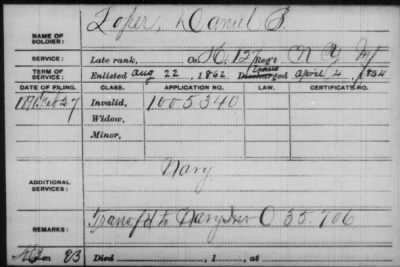 NAME OF SOLDIER: Loper, Daniel S.
SERVICE: Late rank, Co. K, 127 Reg't N Y Inf
TERM OF SERVICE: Enlisted Aug 22, 1862 Trans Discharged April 4, 1864
DATE OF FILING. CLASS. APPLICATION NO. LAW. CERTIFICATE NO.
Invalid, 1005340
Widow,
Minor,
ADDITIONAL SERVICES: Navy
REMARKS: Transf'd to Navy O 35.706
Died , 1 , at